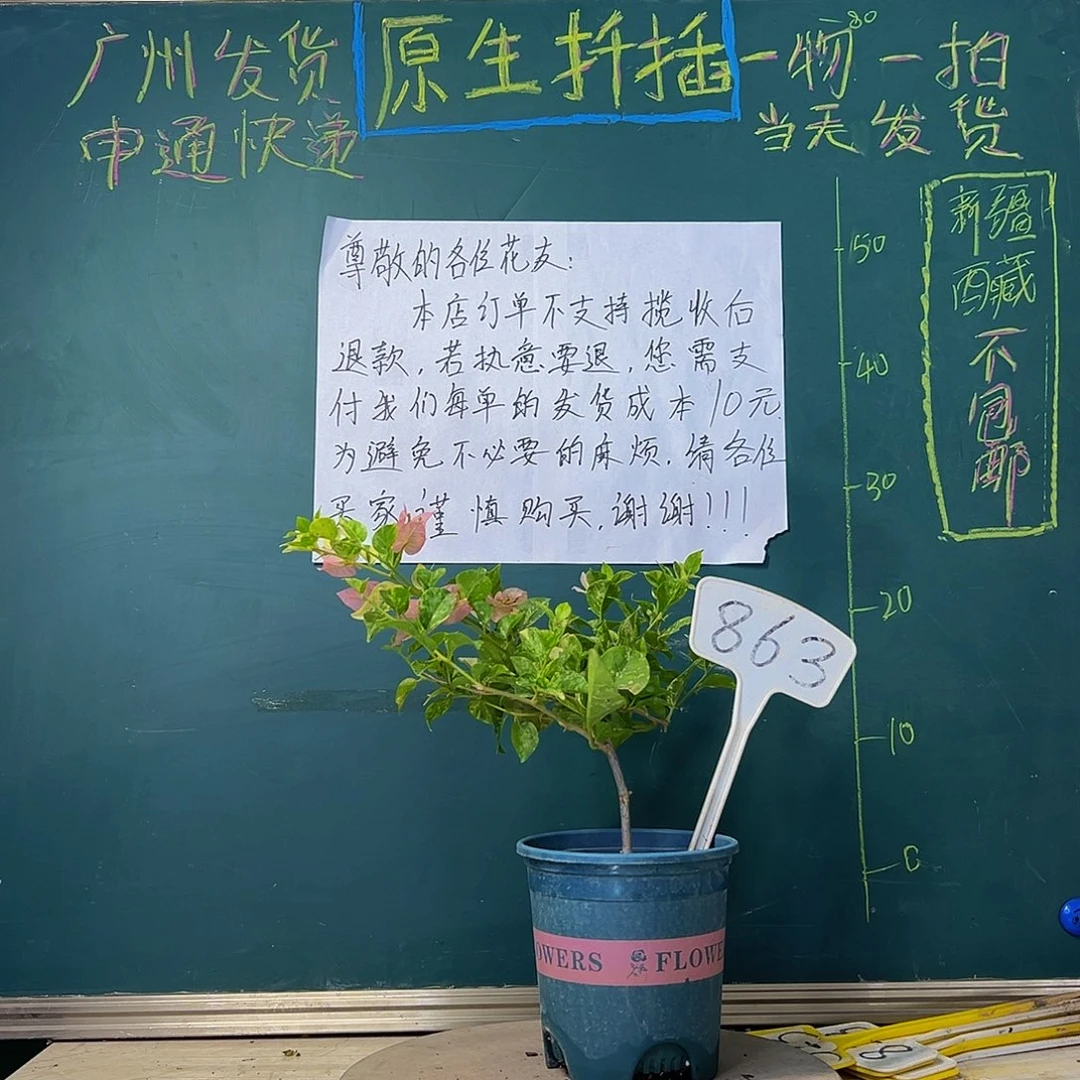 广州发货
申通快递
原生扦插
一物一拍
当天发货
80
新疆
西藏
不包邮
50
40
30
20
10
0
尊敬的各位花友:
本店订单不支持揽收后
退款,若执意要退,您需支
付我们每单的发货成本10元
为避免不必要的麻烦,请各位
买家谨慎购买,谢谢!!!
863
OWERS FLOWE
8